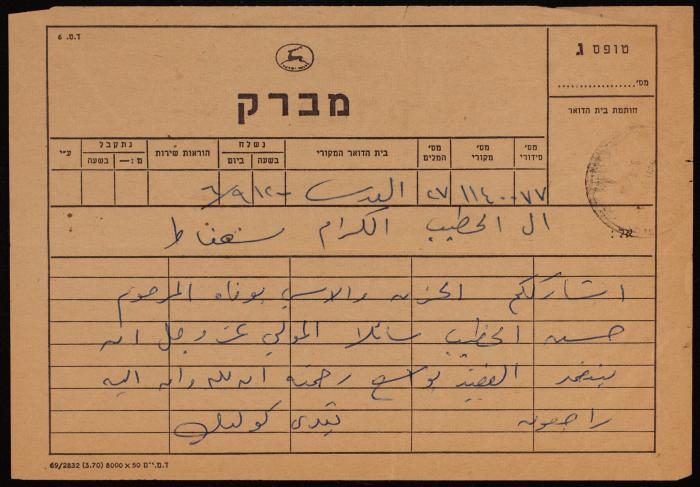 ד.ט. 6
טופס ג
מס׳
מברק
חותמת בית הדואר
ע״י
נתקבל
מ:—
בשעה
הוראות שירות
נשלח
ביום
בשעה
בית הדואר המקורי
מס׳ המלים
מס׳ מקורי
מס׳ סידורי
٧٧ ١١٤٠٠ ٢٧ القدس ١٢٠٠ ٦/٩
ال الخطيب الكرام شعفاط
אל:
اشارككم الحزن والاسى بوفاة المرحوم
حسين الخطيب سائلا المولى عز وجل ان
يتغمد الفقيد بواسع رحمته انا لله وانا اليه
راجعون تيدي كوليك
69/2832 (3.70) 8000 x 50 ד.מ.י״ם